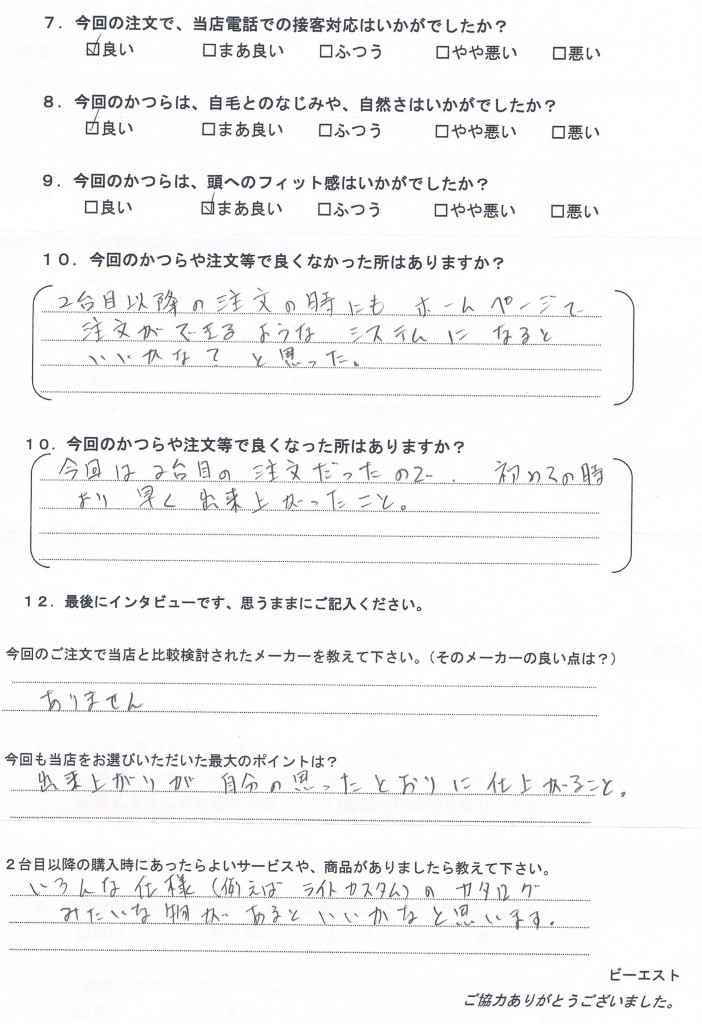 ７．今回の注文で、当店電話での接客対応はいかがでしたか？
☑良い　□まあ良い　□ふつう　□やや悪い　□悪い
８．今回のかつらは、自毛とのなじみや、自然さはいかがでしたか？
☑良い　□まあ良い　□ふつう　□やや悪い　□悪い
９．今回のかつらは、頭へのフィット感はいかがでしたか？
□良い　☑まあ良い　□ふつう　□やや悪い　□悪い
１０．今回のかつらや注文等で良くなかった所はありますか？
2台目以降の注文の時にも ホームページで
注文ができるような システムになると
いいかなて と思った。
１０．今回のかつらや注文等で良くなった所はありますか？
今回は2台目の注文だったので、初めての時
より 早く出来上がったこと。
１２．最後にインタビューです、思うままにご記入ください。
今回のご注文で当店と比較検討されたメーカーを教えて下さい。（そのメーカーの良い点は？）
ありません
今回も当店をお選びいただいた最大のポイントは？
出来上がりが 自分の思ったとおりに仕上がること。
２台目以降の購入時にあったらよいサービスや、商品がありましたら教えて下さい。
いろんな仕様（例えば ライトカスタム）のカタログ
みたいな物が あるといいかなと思います。
ビーエスト
ご協力ありがとうございました。